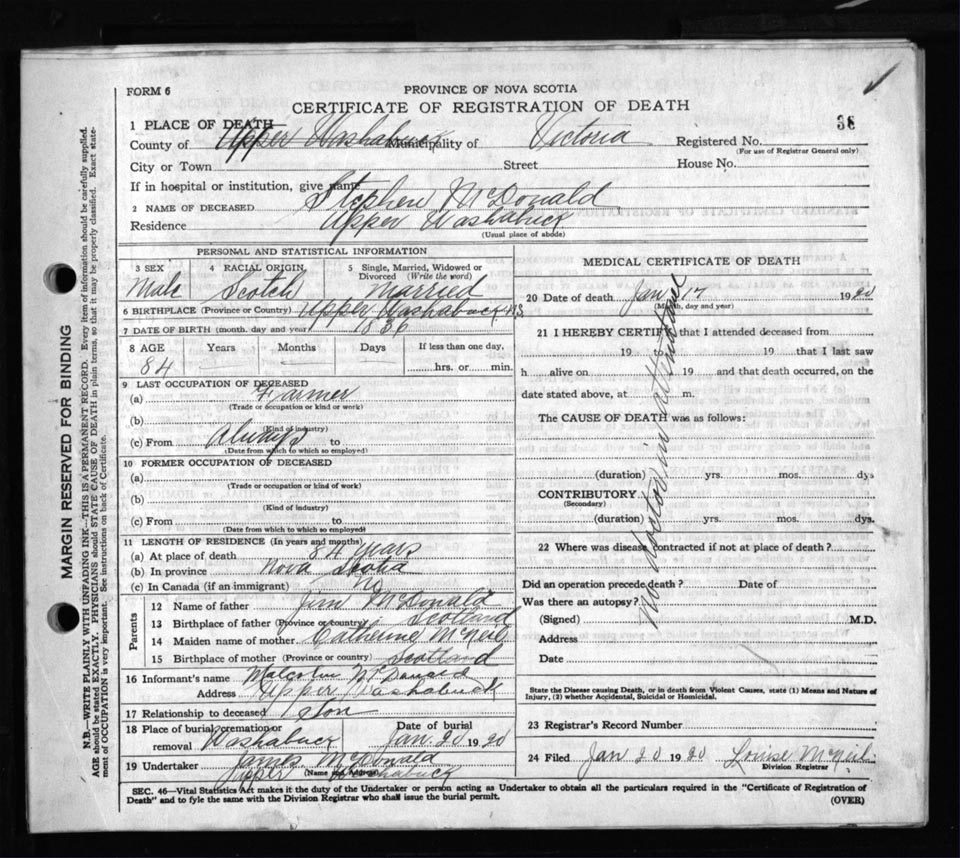 FORM 6
PROVINCE OF NOVA SCOTIA
CERTIFICATE OF REGISTRATION OF DEATH
1 PLACE OF DEATH
36
County of Upper Washabuck Municipality of Victoria Registered No.
(For use of Registrar General only)
City or Town Street House No.
If in hospital or institution, give name
2 NAME OF DECEASED Stephen McDonald
Residence Upper Washabuck
(Usual place of abode)
PERSONAL AND STATISTICAL INFORMATION
3 SEX 4 RACIAL ORIGIN 5 Single, Married, Widowed or Divorced (Write the word)
Male Scotch Married
6 BIRTHPLACE (Province or Country) Upper Washabuck N.S
7 DATE OF BIRTH (month, day and year) 1836
8 AGE Years Months Days If less than one day,
84 hrs. or min.
9 LAST OCCUPATION OF DECEASED
(a) Farmer
(Trade or occupation or kind or work)
(b)
(Kind of industry)
(c) From Always to
(Date from which to which so employed)
10 FORMER OCCUPATION OF DECEASED
(a)
(Trade or occupation or kind of work)
(b)
(Kind of industry)
(c) From to
(Date from which to which so employed)
11 LENGTH OF RESIDENCE (In years and months)
(a) At place of death 84 years
(b) In province Nova Scotia
(c) In Canada (if an immigrant) no
Parents
12 Name of father Jim McDonald
13 Birthplace of father (Province or country) Scotland
14 Maiden name of mother Catherine McNeil
15 Birthplace of mother (Province or country) Scotland
16 Informant's name Malcolm McDonald
Address Upper Washabuck
17 Relationship to deceased Son
18 Place of burial, cremation or removal Washabuck Date of burial Jan 20 1920
19 Undertaker James McDonald
(Name and Address)
Upper Washabuck
MEDICAL CERTIFICATE OF DEATH
20 Date of death Jan 17 1920
(Month, day and year)
21 I HEREBY CERTIFY that I attended deceased from
19 19 that I last saw
h alive on 19 and that death occurred, on the
date stated above, at m.
The CAUSE OF DEATH was as follows:
No doctor in attendance
(duration) yrs. mos. dys
CONTRIBUTORY
(Secondary)
(duration) yrs. mos. dys.
22 Where was disease contracted if not at place of death?
Did an operation precede death? Date of
Was there an autopsy?
(Signed) M.D.
Address
Date
State the Disease causing Death, or in death from Violent Causes, state (1) Means and Nature of
Injury, (2) whether Accidental, Suicidal or Homicidal.
23 Registrar's Record Number
24 Filed Jan 20 1920 Louise McNeil
Division Registrar
SEC. 46—Vital Statistics Act makes it the duty of the Undertaker or person acting as Undertaker to obtain all the particulars required in the "Certificate of Registration of
Death" and to fyle the same with the Division Registrar who shall issue the burial permit.
(OVER)
MARGIN RESERVED FOR BINDING
N.B.—WRITE PLAINLY WITH UNFADING INK—THIS IS A PERMANENT RECORD. Every item of information should be carefully supplied.
AGE should be stated EXACTLY. PHYSICIANS should STATE CAUSE OF DEATH in plain terms, so that it may be properly classified. Exact state-
ment of OCCUPATION is very important. See instructions on back of Certificate.